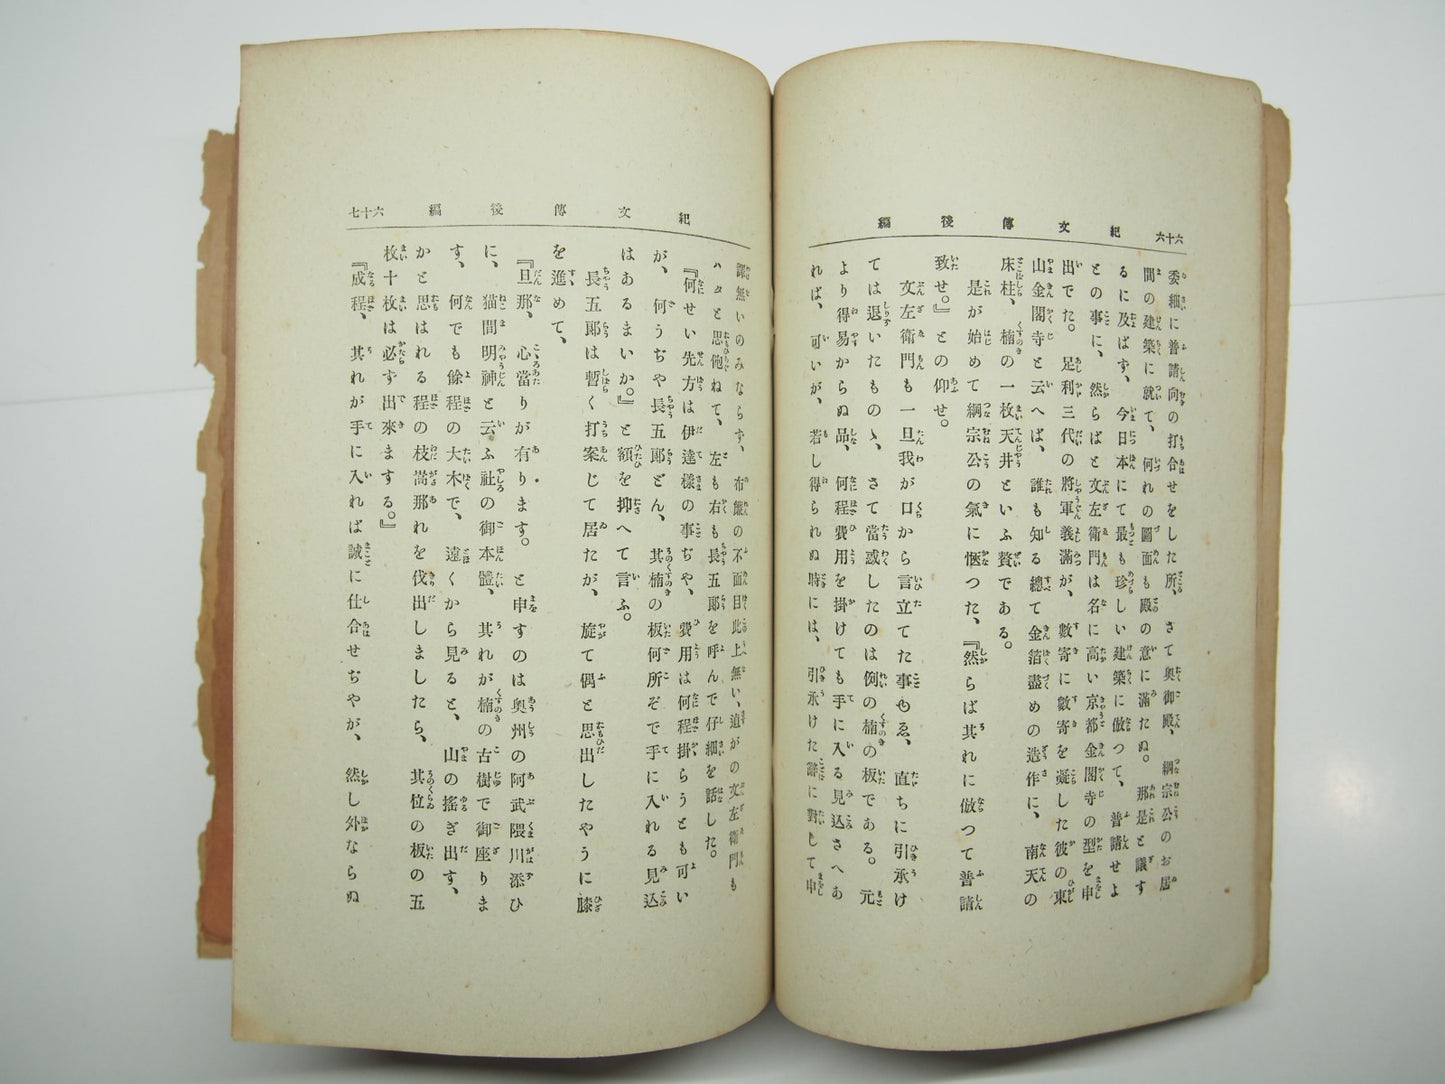 紀文傳後編　六十六
委細に普請向の打合せをした所、さて奥御殿、綱宗公のお居
間の建築に就て、何れの圖面も殿の意に滿たぬ。那是と議す
るに及ばず、今日本にて最も珍しい建築に倣つて、普請せよ
との事に、然らばと文左衛門は名に高い京都金閣寺の型を申
出でた。足利三代の將軍義滿が、數寄に數寄を凝した彼の東
山金閣寺と云へば、誰も知る總て金箔盡めの造作に、南天の
床柱、楠の一枚天井といふ贅である。
是が始めて綱宗公の氣に愜つた、『然らば其れに倣つて普請
致せ。』との仰せ。
文左衛門も一旦我が口から言立てた事ゆゑ、直ちに引承け
ては退いたものゝ、さて當惑したのは例の楠の板である。元
より得易からぬ品、何程費用を掛けても手に入る見込さへあ
れば、可いが、若し得られぬ時には、引承けた辭に對して申
紀文傳後編　六十七
譯無いのみならず、布簾の不面目此上無い、迫がの文左衛門も
ハタと思佗ねて、左も右も長五郎を呼んで仔細を話した。
『何せい先方は伊達樣の事ぢや、費用は何程掛らうとも可い
が、何うぢや長五郎どん、其楠の板何所ぞで手に入れる見込
はあるまいか。』と額を抑へて言ふ。
長五郎は暫く打案じて居たが、旋て偶と思出したやうに膝
を進めて、
『旦那、心當りが有ります。と申すのは奥州の阿武隈川添ひ
に、猫間明神と云ふ祉の御本體、其れが楠の古樹で御座りま
す、何でも餘程の大木で、遠くから見ると、山の搖ぎ出す、
かと思はれる程の枝嵩那れを伐出しましたら、其位の板の五
枚十枚は必ず出來まする。』
『成程、其れが手に入れば誠に仕合せぢやが、然し外ならぬ